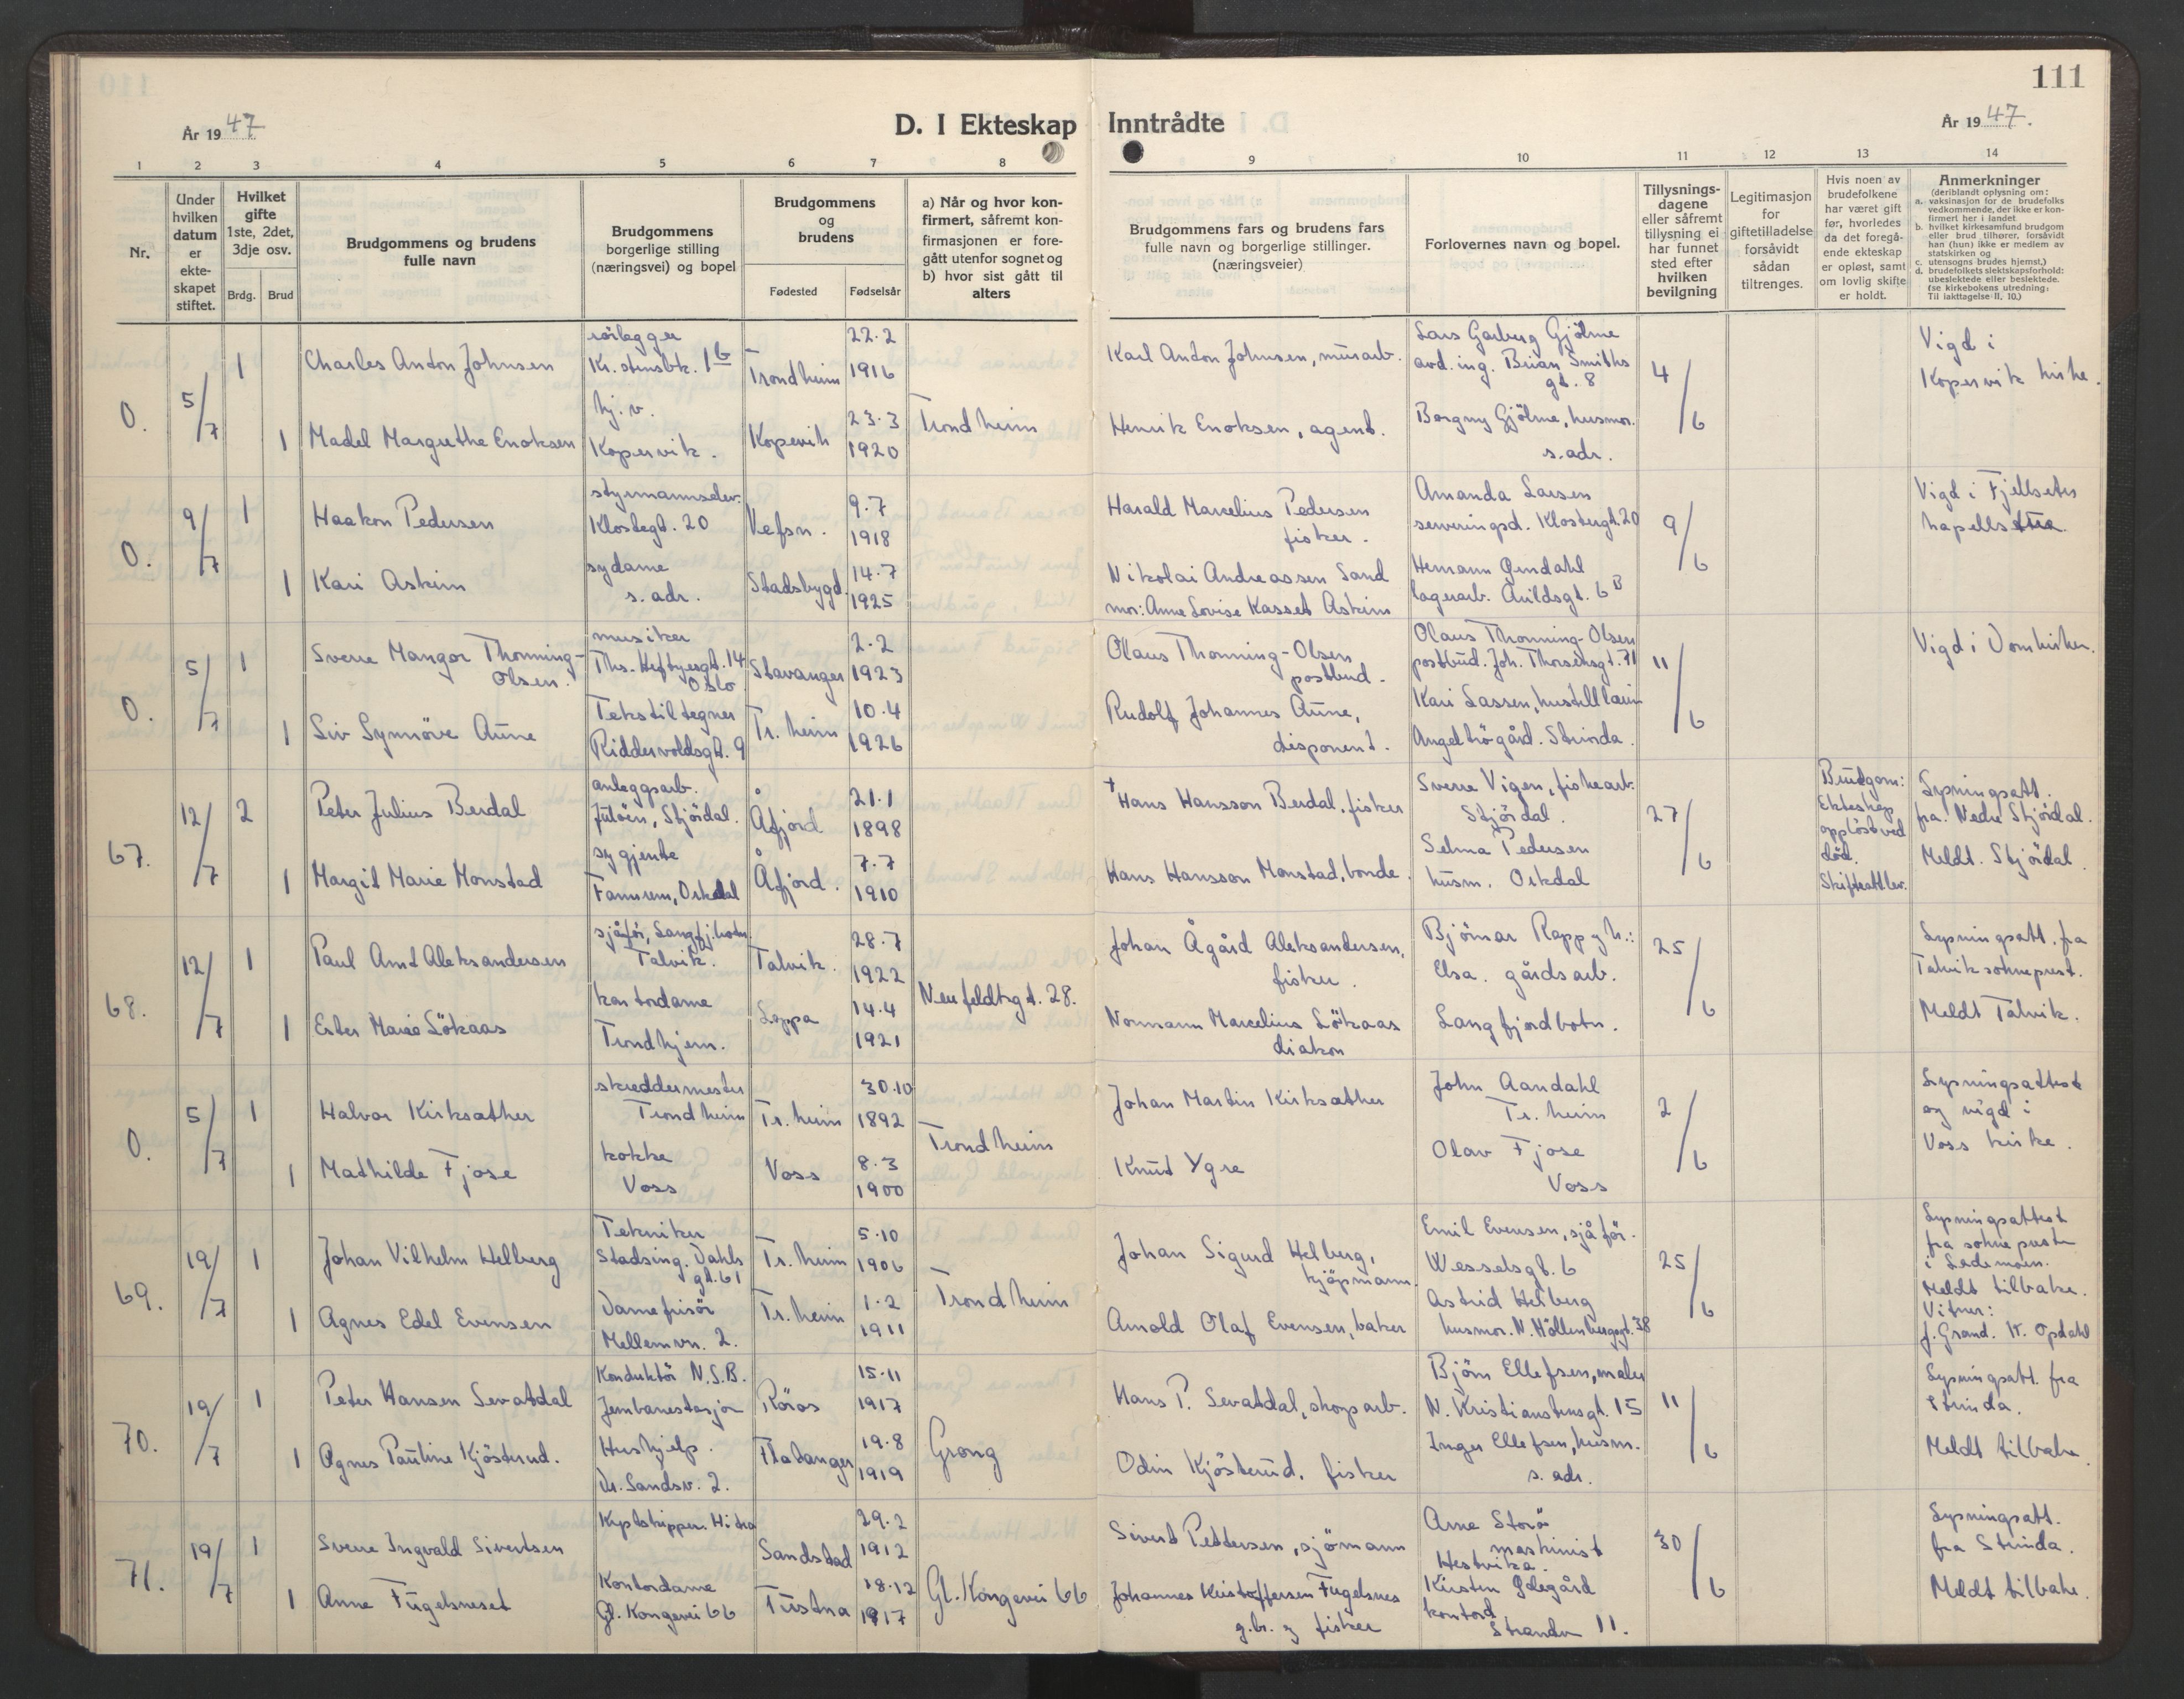 111
År 1947
D. I Ekteskap Inntrådte
År 1947.
1 2 3 4 5 6 7 8 9 10 11 12 13 14
Nr.
Under hvilken datum er ekteskapet stiftet.
Hvilket gifte 1ste, 2det, 3dje osv.
Brdg. Brud
Brudgommens og brudens fulle navn
Brudgommens borgerlige stilling (næringsvei) og bopel
Brudgommens og brudens
Fødested Fødselsår
a) Når og hvor konfirmert, såfremt konfirmasjonen er foregått utenfor sognet og b) hvor sist gått til alters
Brudgommens fars og brudens fars fulle navn og borgerlige stillinger. (næringsveier)
Forlovernes navn og bopel.
Tillysningsdagene eller såfremt tillysning ei har funnet sted efter hvilken bevilgning
Legitimasjon for giftetilladelse forsåvidt sådan tiltrenges.
Hvis noen av brudefolkene har været gift før, hvorledes da det foregående ekteskap er opløst, samt om lovlig skifte er holdt.
Anmerkninger
(deriblandt oplysning om:
a. vaksinasjon for de brudefolks vedkommende, der ikke er konfirmert her i landet
b. hvilket kirkesamfund brudgom eller brud tilhører, forsåvidt han (hun) ikke er medlem av statskirken og
c. utensogns brudes hjemst.)
d. brudefolkets slektskapsforhold: ubeslektede eller beslektede.
(se kirkebokens utredning: Til iakttagelse II, 10.)
0. 5/7 1 Charles Anton Johnsen
rörlegger
Kr. stensbk. 1b
Trondheim 22.2 1916
Karl Anton Johnsen, murarb.
Lars Garberg Gjölme
avd. ing. Brian Smiths
gt. 8
4/6
Vigd i
Kopervik kirke.
1 Madel Margrethe Enoksen
hj. v.
Kopervik.
Kopervik 23.3 1920
Trondheim
Henrik Enoksen, agent.
Borgny Gjölme, husmor.
s. adr.
0. 9/7 1 Haakon Pedersen
styrmannselev.
Klostegt. 20
Vefsn. 9.7 1918
Harald Marcelius Pedersen
fisker.
Amanda Larsen
serveringsd. Klostergt. 20
9/6
Vigd i Fjellseter
kapell
1 Kari Askim
sydame
s. adr.
Stadsbygd. 14.7 1925
Nikolai Andreassen Sand
mor: Anne Lovise Kasset Askim
Hemann Grndahl
lagerarb. Arildsgt. 6 B
0. 5/7 1 Sverre Mangor Thonning-
Olsen.
musiker
Ths. Heftyesgt. 14
Oslo.
Stavanger 2.2 1923
Olaus Thonning-Olsen
postbud.
Olaus Thonning-Olsen
postbud. Joh. Thorsensgt. 71
11/6
Vigd i Domkirken.
1 Siv Synnöve Aune
Tekstiltegner
Riddervoldsgt. 9
Tr. heim 10.4 1926
Rudolf Johannes Aune,
disponent.
Kari Lassen, hustellærer
Angeltrögård. Strinda.
67. 12/7 2 Peter Julius Berdal
anleggsarb.
Jutöen, Stjördal.
Åfjord 21.1 1898
† Hans Hansson Berdal, fisker
Sverre Vigen, fiskearb.
Stjördal.
27/6
Brudgom:
Ekteskap
opplöst ved
död.
Skifteatt lev.
Lysningsatt.
fra Nedre Stjördal.
Meldt. Stjördal.
1 Margit Marie Monstad
sygjente
Fannrem, Orkdal
Åfjord. 7.7 1910
Hans Hansson Monstad, bonde.
Selma Pedersen
husm. Orkdal
68. 12/7 1 Paul Arnt Aleksandersen
sjåför, Langfj.botn.
Talvik.
Talvik. 28.7 1922
Johan Ågård Aleksandersen,
fisker.
Björnar Rapp g h.:
Elsa. gårdsarb.
Langfjordbotn.
25/6
Lysningsatt. fra
Talvik sokneprest.
Meldt Talvik.
1 Ester Marie Lökaas
kontordame
Trondhjem.
Loppa 14.4 1921
Neufeldtsgt. 28.
Normann Marcelius Lökaas
diakon
0. 5/7 1 Halvor Kirksæther
skreddermester
Trondheim
Tr. heim 30.10 1892
Johan Martin Kirksæther
John Aandahl
Tr. heim
2/6
Lysningsattest
og vigd i
Voss kirke.
1 Mathilde Fjose
kokke
Voss
Voss 8.3 1900
Trondheim
Knut Ygre
Olav Fjose
Voss
69. 19/7 1 Johan Vilhelm Helberg
Tekniker
Stadsing. Dahls
gt. 61
Tr. heim 5.10 1906
Johan Sigurd Helberg,
kjöpmann.
Emil Evensen, sjåför.
Wesselsgt. 6
25/6
Lysningsattest
fra sokneprest
i Lademoen.
Meldt tilbake.
Vitner:
J. Grand. K. Opdahl
1 Agnes Edel Evensen
Damefrisör
Mellemvn. 2.
Tr. heim 1.2 1911
Trondheim
Arnold Olaf Evensen, baker
Astrid Helberg
husmor. N. Möllenbergsgt. 38
70. 19/7 1 Peter Hansen Sevatdal
Konduktör N.S.B.
Jernbanestasjon
Röros 15.11 1917
Hans P. Sevatdal, skogsarb.
Björn Ellefsen, maler
N. Kristianstensgt. 15
11/6
Lysningsatt. fra
Strinda.
Meldt tilbake.
1 Agnes Pauline Kjösterud.
Hushjelp.
Dr. Sandsv. 2.
Flatanger 19.8 1919
Grong
Odin Kjösterud, fisker
Inger Ellefsen, husm.
s. adr.
71. 19/7 1 Sverre Ingvald Sivertsen
Kystskipper. Hitra
Sandstad 29.2 1912
Sivert Pettersen, sjömann
Arne Storö
maskinist
Hestvika.
30/6
Lysningsatt.
fra Strinda.
Meldt tilbake.
1 Anne Fugelsneset
Kontordame
Gl. Kongevei 66
Tustna 18.12 1917
Gl. Kongevei 66
Johannes Kristoffersen Fugelsnes
g.br. og fisker
Kirsten Ödegård
kontord.
Strandv 11.